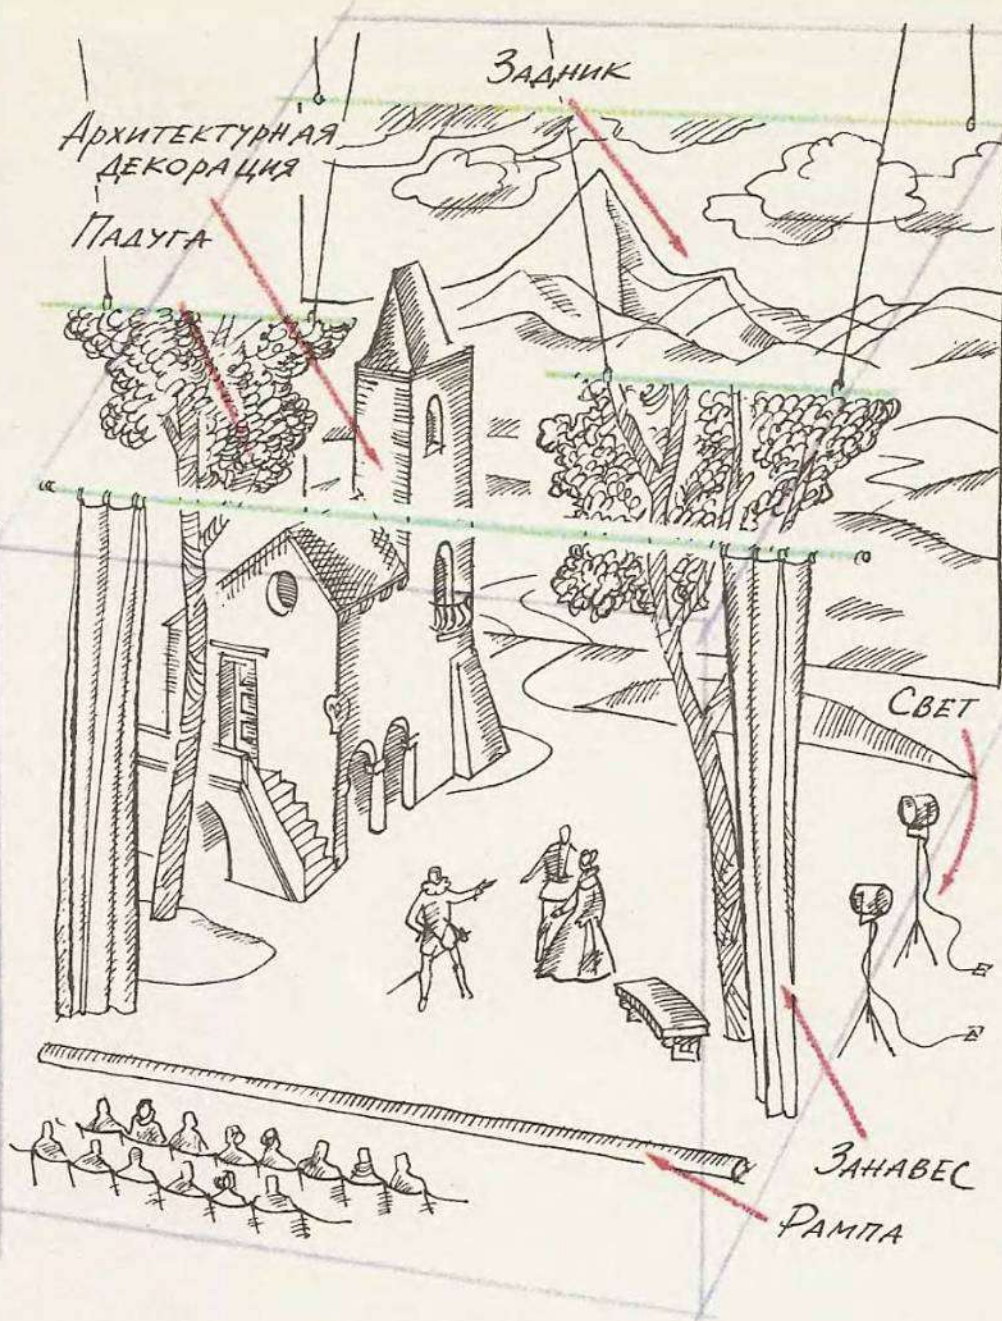 Задник
Архитектурная
декорация
Падуга
Свет
Занавес
Рампа